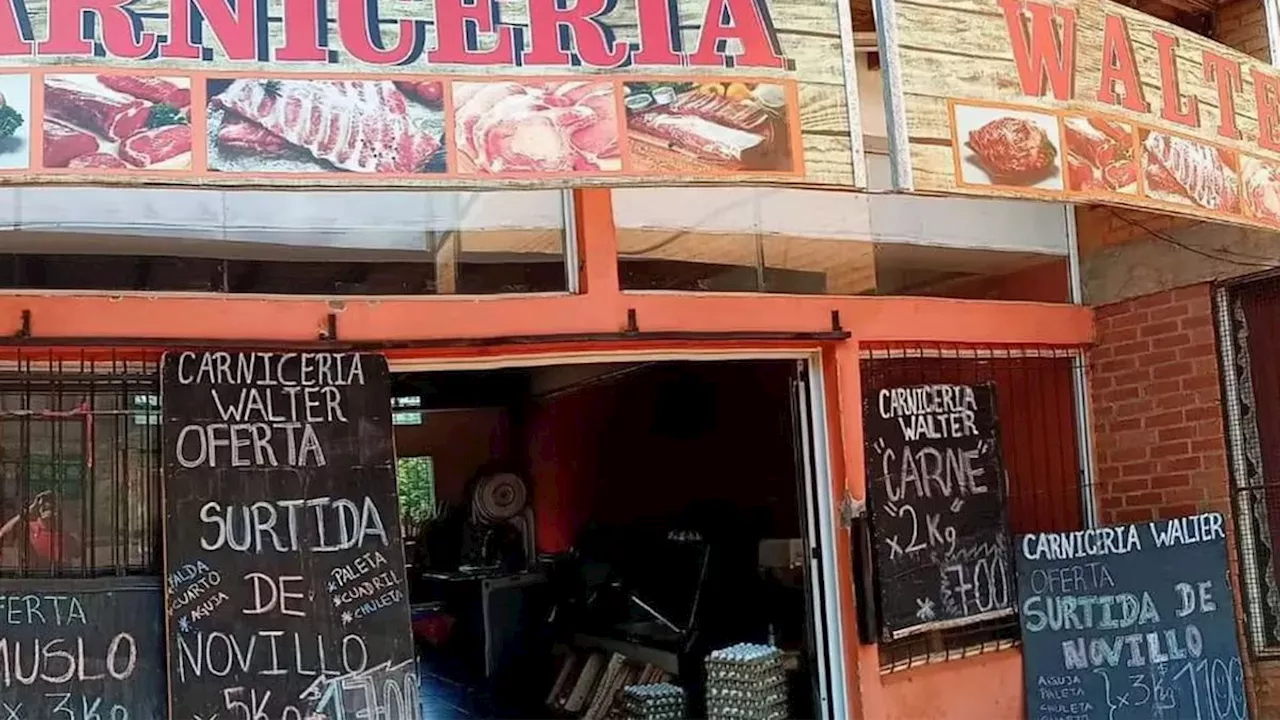 CARNICERIA
WALTE
CARNICERIA
WALTER
OFERTA
SURTIDA
*FALDA
*CUARTO
*AGUJA
DE
*PALETA
*CUADRIL
*CHULETA
NOVILLO
5KG
1700
OFERTA
MUSLO
x 3KG
CARNICERIA
WALTER
"CARNE"
x2Kg
*700
CARNICERIA WALTER
OFERTA
SURTIDA DE
NOVILLO
AGUJA
PALETA
CHULETA
x 3KG
1100